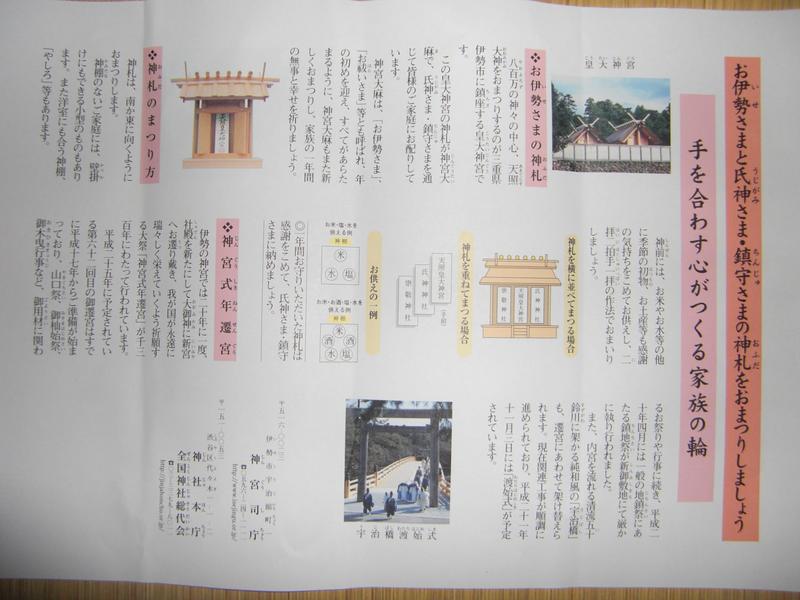 お伊勢さまと氏神さま・鎮守さまの神札をおまつりしましょう
手を合わす心がつくる家族の輪
皇大神宮
❖お伊勢さまの神札
八百万の神々の中心、天照
大神をおまつりするのが三重県
伊勢市に鎮座する皇大神宮で
す。
この皇大神宮の神札が神宮大
麻で、氏神さま・鎮守さまを通
じて皆様のご家庭にお配りして
います。
神宮大麻は、「お伊勢さま」、
「お祓いさま」等とも呼ばれ、年
の初めを迎え、すべてがあらた
まるように、神宮大麻もまた新
しくおまつりし、家族の一年間
の無事と幸せを祈りましょう。
❖神札のまつり方
神札は、南か東に向くように
おまつりします。
神棚のないご家庭には、壁掛
けにもできる小型のものもあり
ます。また洋室にも合う神棚、
「やしろ」等もあります。
神前には、お米やお水等の他
に季節の初物、お土産等も感謝
の気持ちをこめてお供えし、二
拝二拍手一拝の作法でおまいり
しましょう。
神札を横に並べてまつる場合
氏神神社
天照皇大神宮
崇敬神社
神札を重ねてまつる場合
天照皇大神宮
(手前)
氏神神社
崇敬神社
お供えの一例
お米・塩・水を
供える例
神棚
米
水 塩
お米・お酒・塩・水を
供える例
神棚
米
酒 酒
水 塩
◎一年間お守りいただいた神札は
感謝をこめて、氏神さま・鎮守
さまに納めましょう。
❖神宮式年遷宮
伊勢の神宮では二十年に一度、
社殿を新たにして大御神に新宮
へお遷り戴き、我が国が永遠に
瑞々しく栄えていくよう祈願す
る大祭「神宮式年遷宮」が千三
百年にわたって行われています。
平成二十五年に予定されてい
る第六十二回目の御遷宮はすで
に平成十七年からご準備が始ま
っており、山口祭、御杣始祭、
御木曳行事など、御用材に関わ
るお祭りや行事に続き、平成二
十年四月には一般の地鎮祭にあ
たる鎮地祭が新御敷地にて厳か
に執り行われました。
また、内宮を流れる清流五十
鈴川に架かる純和風の「宇治橋」
も、遷宮にあわせて架け替えら
れます。現在関連工事が順調に
進められており、平成二十一年
十一月三日には「渡始式」が予定
されています。
宇治橋渡始式
伊勢市宇治館町一
神宮司庁
神社本庁
全国神社総代会